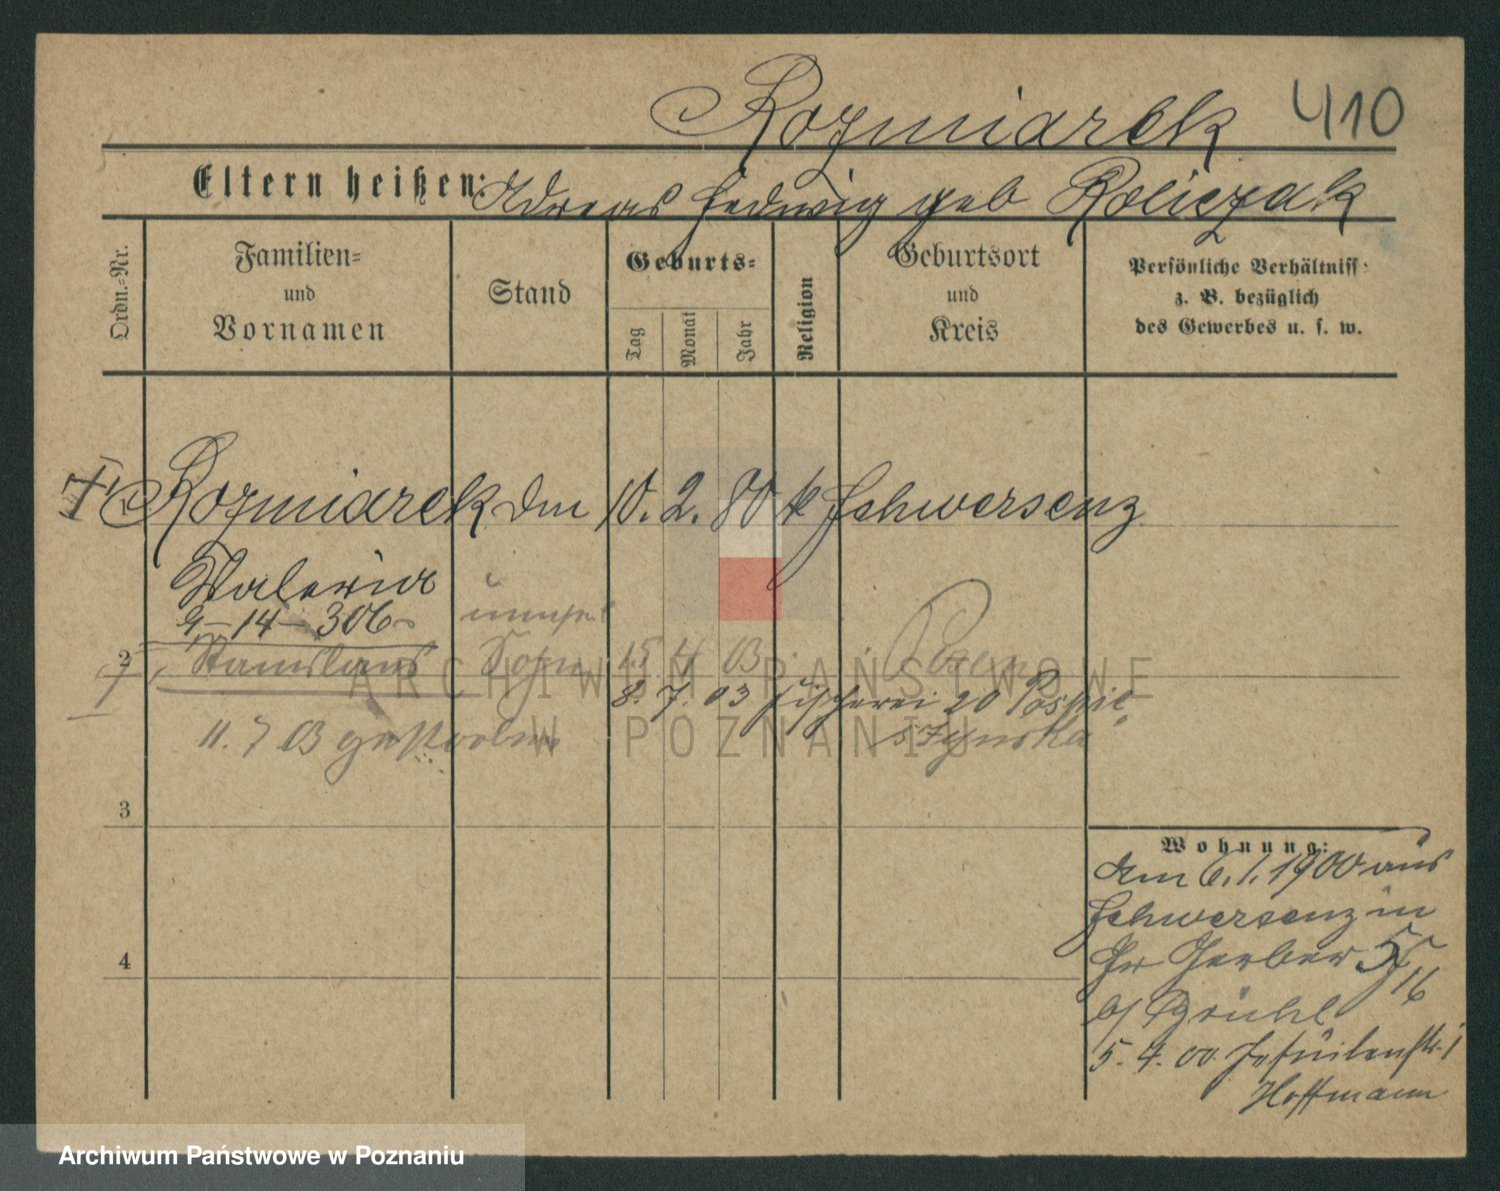 Rozmiarek 410
Eltern heißen: Adreas Hedwig geb Roliczak
Ordn.-Nr.
Familien-
und
Vornamen
Stand
Geburts-
Tag
Monat
Jahr
Religion
Geburtsort
und
Kreis
Persönliche Verhältniss:
z. B. bezüglich
des Gewerbes u. s. w.
1 Rozmiarek Dm 10. 2. 80 k Schwersenz
Valeria
9-14-306
2 Stanislaus Sohn 15 4 03 Posen
8. 7. 03 Fischerei 20
11. 7 03 gestorben
3
4
Wohnung:
Am 6. 1. 1900 aus
Schwersenz in
Gr Gerber 55
16
b/ Brühl
5. 4. 00 Jesuitenstr. 1
Hoffmann
ARCHIWUM PAŃSTWOWE
W POZNANIU
Archiwum Państwowe w Poznaniu